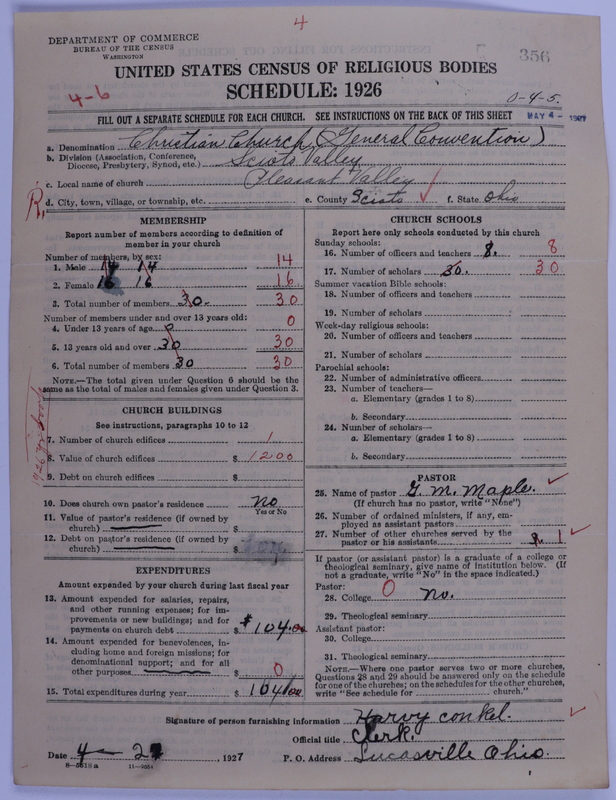 4
DEPARTMENT OF COMMERCE
BUREAU OF THE CENSUS
WASHINGTON
356
UNITED STATES CENSUS OF RELIGIOUS BODIES
SCHEDULE: 1926
4-6
0-4-5.
FILL OUT A SEPARATE SCHEDULE FOR EACH CHURCH. SEE INSTRUCTIONS ON THE BACK OF THIS SHEET
MAY 4 - 1927
a. Denomination Christian Church (General Convention)
b. Division (Association, Conference, Diocese, Presbytery, Synod, etc.) Scioto Valley
c. Local name of church Pleasant Valley
R,
d. City, town, village, or township, etc. e. County Scioto f. State Ohio
MEMBERSHIP
Report number of members according to definition of
member in your church
Number of members, by sex:
1. Male 14 14 14
2. Female 16 16 16
3. Total number of members 30. 30
Number of members under and over 13 years old:
4. Under 13 years of age 0 0
5. 13 years old and over 30 30
6. Total number of members 30 30
NOTE.—The total given under Question 6 should be the
same as the total of males and females given under Question 3.
CHURCH BUILDINGS
See instructions, paragraphs 10 to 12
7. Number of church edifices 1
8. Value of church edifices $ 1200
9. Debt on church edifices $
10. Does church own pastor's residence No
Yes or No
11. Value of pastor's residence (if owned by
church) $
12. Debt on pastor's residence (if owned by
church) $
EXPENDITURES
Amount expended by your church during last fiscal year
13. Amount expended for salaries, repairs,
and other running expenses; for im-
provements or new buildings; and for
payments on church debt $104.00
14. Amount expended for benevolences, in-
cluding home and foreign missions; for
denominational support; and for all
other purposes $ 0
15. Total expenditures during year $ 104.00
CHURCH SCHOOLS
Report here only schools conducted by this church
Sunday schools:
16. Number of officers and teachers 8. 8
17. Number of scholars 30. 30
Summer vacation Bible schools:
18. Number of officers and teachers
19. Number of scholars
Week-day religious schools:
20. Number of officers and teachers
21. Number of scholars
Parochial schools:
22. Number of administrative officers
23. Number of teachers—
a. Elementary (grades 1 to 8)
b. Secondary
24. Number of scholars—
a. Elementary (grades 1 to 8)
b. Secondary
PASTOR
25. Name of pastor G. M. Maple.
(If church has no pastor, write "None")
26. Number of ordained ministers, if any, em-
ployed as assistant pastors
27. Number of other churches served by the
pastor or his assistants 1
If pastor (or assistant pastor) is a graduate of a college or
theological seminary, give name of institution below. (If
not a graduate, write "No" in the space indicated.)
Pastor:
28. College 0 No.
29. Theological seminary
Assistant pastor:
30. College
31. Theological seminary
NOTE.—Where one pastor serves two or more churches,
Questions 28 and 29 should be answered only on the schedule
for one of the churches; on the schedules for the other churches,
write "See schedule for church."
Signature of person furnishing information Harvy Conkel.
Official title Clerk.
Date 4—27, 1927 P. O. Address Lucasville Ohio.
8—5618a 11—9084